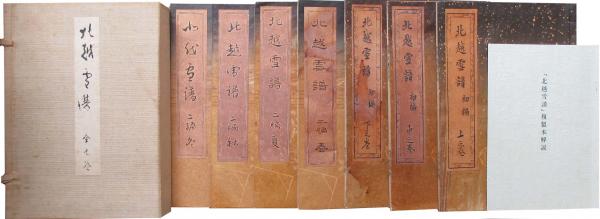 北越雪譜 全七巻
北越雪譜 二編冬
北越雪譜 二編秋
北越雪譜 二編夏
北越雪譜 二編春
北越雪譜 初編 下之巻
北越雪譜 初編 中之巻
北越雪譜 初編 上之巻
「北越雪譜」複製本解説